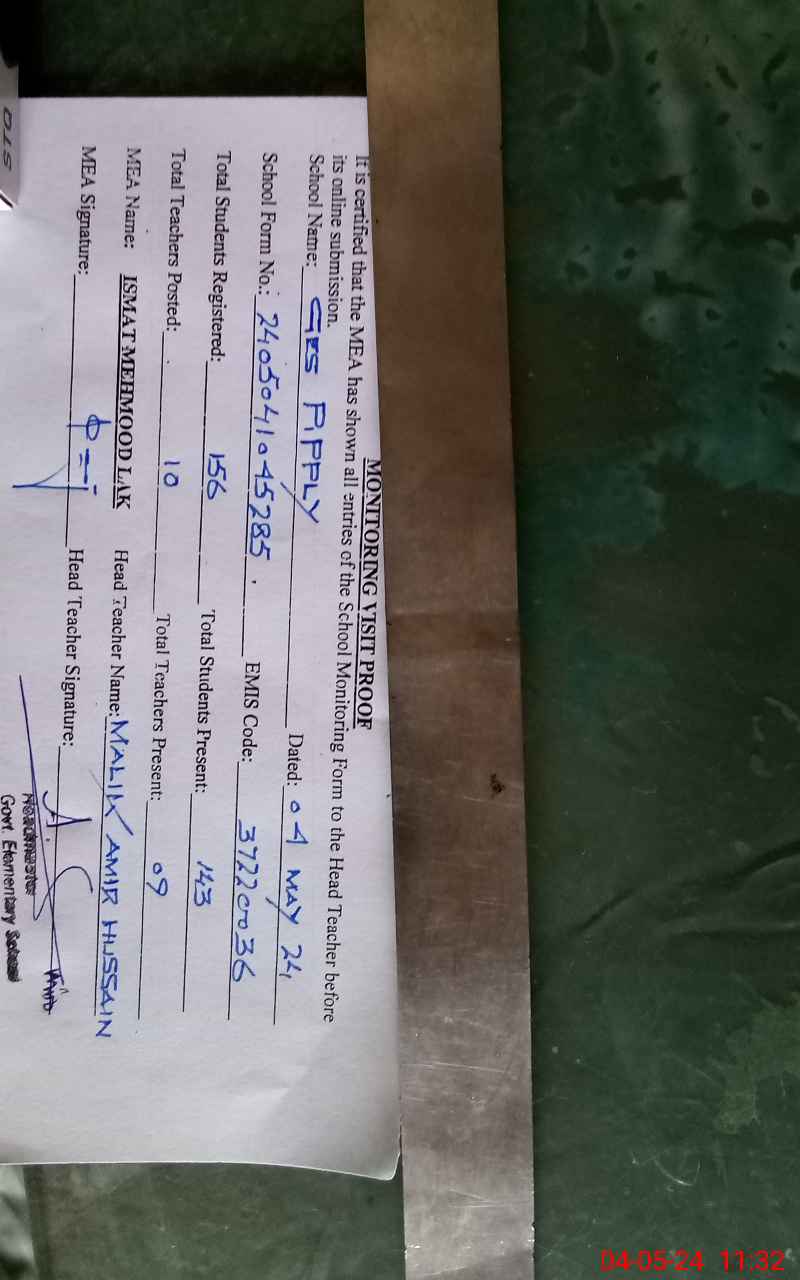 MONITORING VISIT PROOF
It is certified that the MEA has shown all entries of the School Monitoring Form to the Head Teacher before
its online submission.
School Name: GES PIPPLY Dated: 04 MAY 24
School Form No.: 2405041045285 EMIS Code: 37220036
Total Students Registered: 156 Total Students Present: 143
Total Teachers Posted: 10 Total Teachers Present: 09
MEA Name: ISMAT MEHMOOD LAK Head Teacher Name: MALIK AMIR HUSSAIN
MEA Signature: Head Teacher Signature:
Headmaster
Govt. Elementary School
04-05-24 11:32